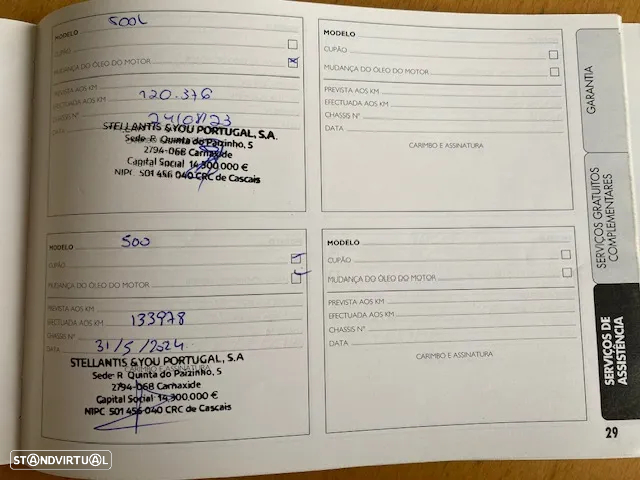 MODELO 500L
CUPÃO
MUDANÇA DO ÓLEO DO MOTOR x
PREVISTA AOS KM
EFECTUADA AOS KM 120.376
CHASSIS Nº
DATA 24/08/23
STELLANTIS &YOU PORTUGAL, S.A.
Sede: R. Quinta do Paizinho, 5
2794-068 Carnaxide
Capital Social 14 300.000 €
NIPC 501 456 040 CRC de Cascais
MODELO
CUPÃO
MUDANÇA DO ÓLEO DO MOTOR
PREVISTA AOS KM
EFECTUADA AOS KM
CHASSIS Nº
DATA
CARIMBO E ASSINATURA
MODELO 500
CUPÃO
MUDANÇA DO ÓLEO DO MOTOR
PREVISTA AOS KM
EFECTUADA AOS KM 133978
CHASSIS Nº
DATA 31/5/2024
STELLANTIS &YOU PORTUGAL, S.A
CARIMBO E ASSINATURA
Sede: R Quinta do Paizinho, 5
2794-068 Carnaxide
Capital Social 14.300.000 €
NIPC 501 456 040 CRC de Cascais
MODELO
CUPÃO
MUDANÇA DO ÓLEO DO MOTOR
PREVISTA AOS KM
EFECTUADA AOS KM
CHASSIS Nº
DATA
CARIMBO E ASSINATURA
GARANTIA
SERVIÇOS GRATUITOS
COMPLEMENTARES
SERVIÇOS DE
ASSISTÊNCIA
29
STANDVIRTUAL